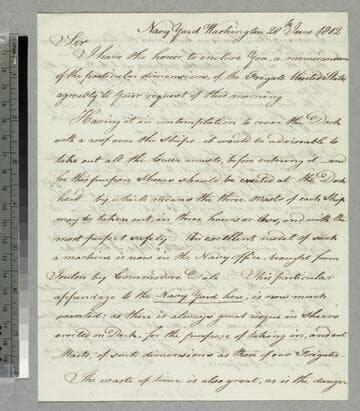 Navy Yard Washington 28th June 1802
Sir
I have the honor to enclose You, a memorandum
of the particular dimensions, of the Frigate United States
agreeably to Your request of this morning
Having it in contemplation to cover the Dock
with a roof over the Ships it would be adviseable to
take out all the lower masts, before entering it and
for this purpose Sheers should be erected at the Dock
head by which means the three Masts of each Ship
may be taken out, in three hours or less, and with the
most perfect safety. An excellent model of such
a machine is now in the Navy Office, brought from
by Commodore Dale This particular
appendage to the Navy Yard here, is now much
wanted, as there is always great risque in Sheers
erected on Deck, for the purpose, of taking in, and out
Masts, of such dimensions as those of our Frigates
The waste of time is also great, as is the danger